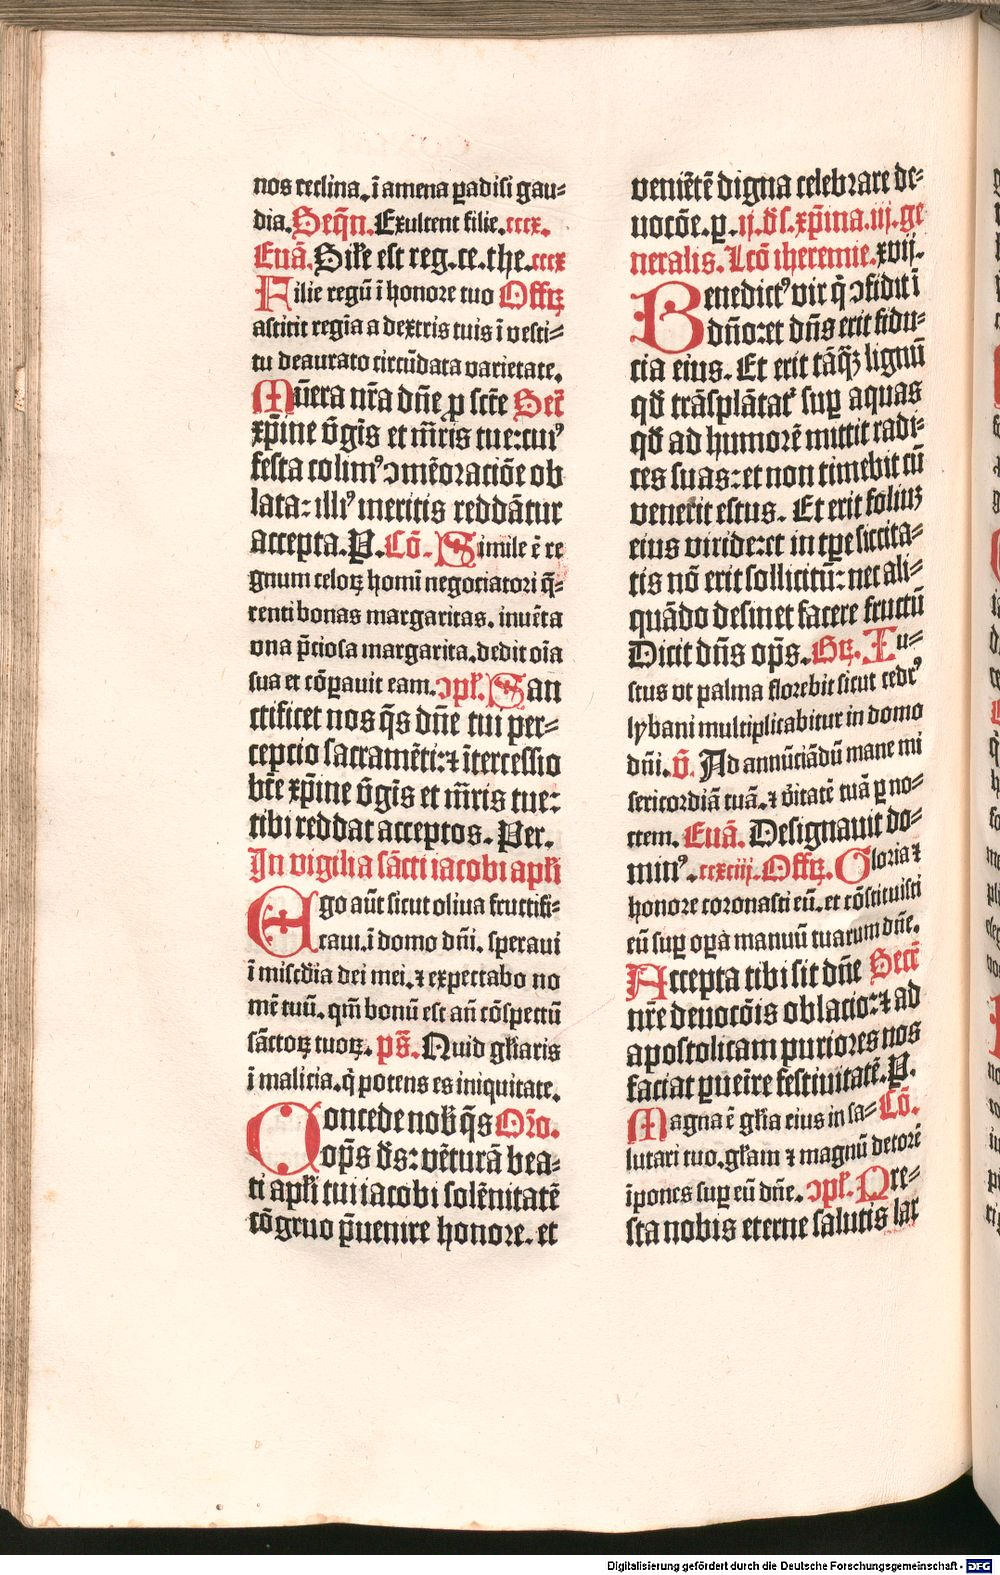 nos reclina. ī amena ꝑadisi gau⸗
dia. Seq̄n. Exultent filie. cccx.
Euā. Sil̄e est reg. ce. the. cccx
Filie regū ī honore tuo Offꝝ
astitit regīa a dextris tuis ī vesti⸗
tu deaurato circūdata varietate.
Mūera nr̄a dn̄e ꝓ scr̄e Secr̄
xp̄ine v̄gīs et mr̄is tue: cuiꝰ
festa colimꝰ ↄmēoraciōe ob
lata: illiꝰ meritis reddātur
accepta. P. Cō. Simile ē re
gnum celoꝝ homī negociatori q̄⸗
renti bonas margaritas. inuēta
vna p̄ciosa margarita. dedit oīa
sua et cōꝑauit eam. ↄpl̄. San
ctificet nos q̄s dn̄e tui per⸗
cepcio sacramēti: ⁊ ītercessio
bt̄e xp̄ine v̄gīs et mr̄is tue:
tibi reddat acceptos. Per.
In vigilia sācti iacobi apl̄i
Ego aūt sicut oliua fructifi⸗
caui. ī domo dn̄i. speraui
ī misc̄dia dei mei. ⁊ expectabo no
mē tuū. qm̄ bonū est an̄ cōspectū
sāctoꝝ tuoꝝ. ps̄. Quid gl̄iaris
ī malicia. q̄ potens es iniquitate.
Concede nob̄ q̄s Or̄o.
op̄s d̄s: vētura̅ bea⸗
ti apl̄i tui iacobi solēnitatē
cōgruo p̄uenire honore. et
veniētē digna celebrare de⸗
uocōe. ꝑ. ij. d̄s. xp̄ina. iij. ge
neralis. Lcō iheremie. xvij.
Benedictꝰ vir q̄ ↄfidit ī
dn̄o: et dn̄s erit fidu⸗
cia eius. Et erit tāꝙ lignū
qd̄ trāsplātat᷒ suꝑ aquas
qd̄ ad humorē mittit radi⸗
ces suas: et non timebit cū
vener̄it estus. Et erit foliuꝫ
eius viride: et in tp̄e siccita⸗
tis nō erit sollicitū: nec ali⸗
quādo desinet facere fructū
Dicit dn̄s op̄s. Gꝝ. Iu⸗
stus vt palma florebit sicut cedrꝰ
lybani multiplicabitur in domo
dn̄i. v̄. Ad annūciādū mane mi
sericordiā tuā. ⁊ v̄itatē tuā ꝑ no⸗
ctem. Euā. Designauit do⸗
minꝰ. ccxciij. Offꝝ. Gloria ⁊
honore coronasti eū. et cōstituisti
eū suꝑ oꝑa manuū tuarum dn̄e.
Accepta tibi sit dn̄e Secr̄
nr̄e deuocōis oblacio: ⁊ ad
apostolicam puriores nos
faciat ꝓueīre festiuitatē. P.
Magna ē gl̄ia eius in sa⸗ Cō.
lutari tuo. gl̄iam ⁊ magnū decorē
īpones suꝑ eū dn̄e. ↄpl̄. Pre⸗
sta nobis eterne salutis lar
Digitalisierung gefördert durch die Deutsche Forschungsgemeinschaft - DFG